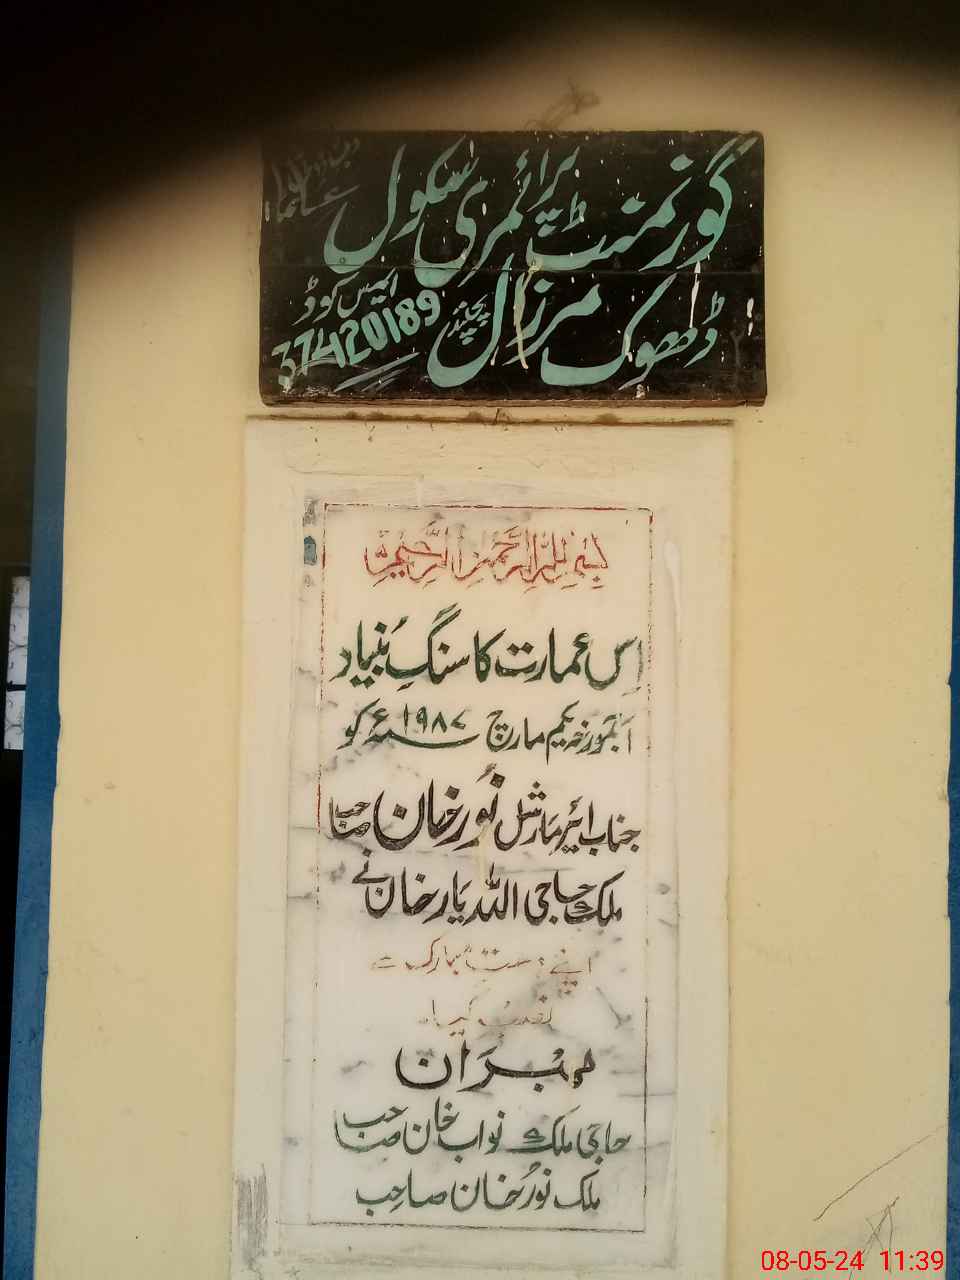 گورنمنٹ پرائمری سکول
ڈھوک مرزال پچنند
ایمس کوڈ
37420189
بسم اللہ الرحمن الرحیم
اِس عمارت کا سنگِ بُنیاد
بمورخہ یکم مارچ ۱۹۸۷ء کو
جناب ائیر مارشل نُور خان صاحب
ملک حاجی اللہ یار خان نے
اپنے دست مبارک سے
نصب کیا۔
مہبران
حاجی ملک نواب خان صاحب
ملک نُور خان صاحب
08-05-24 11:39